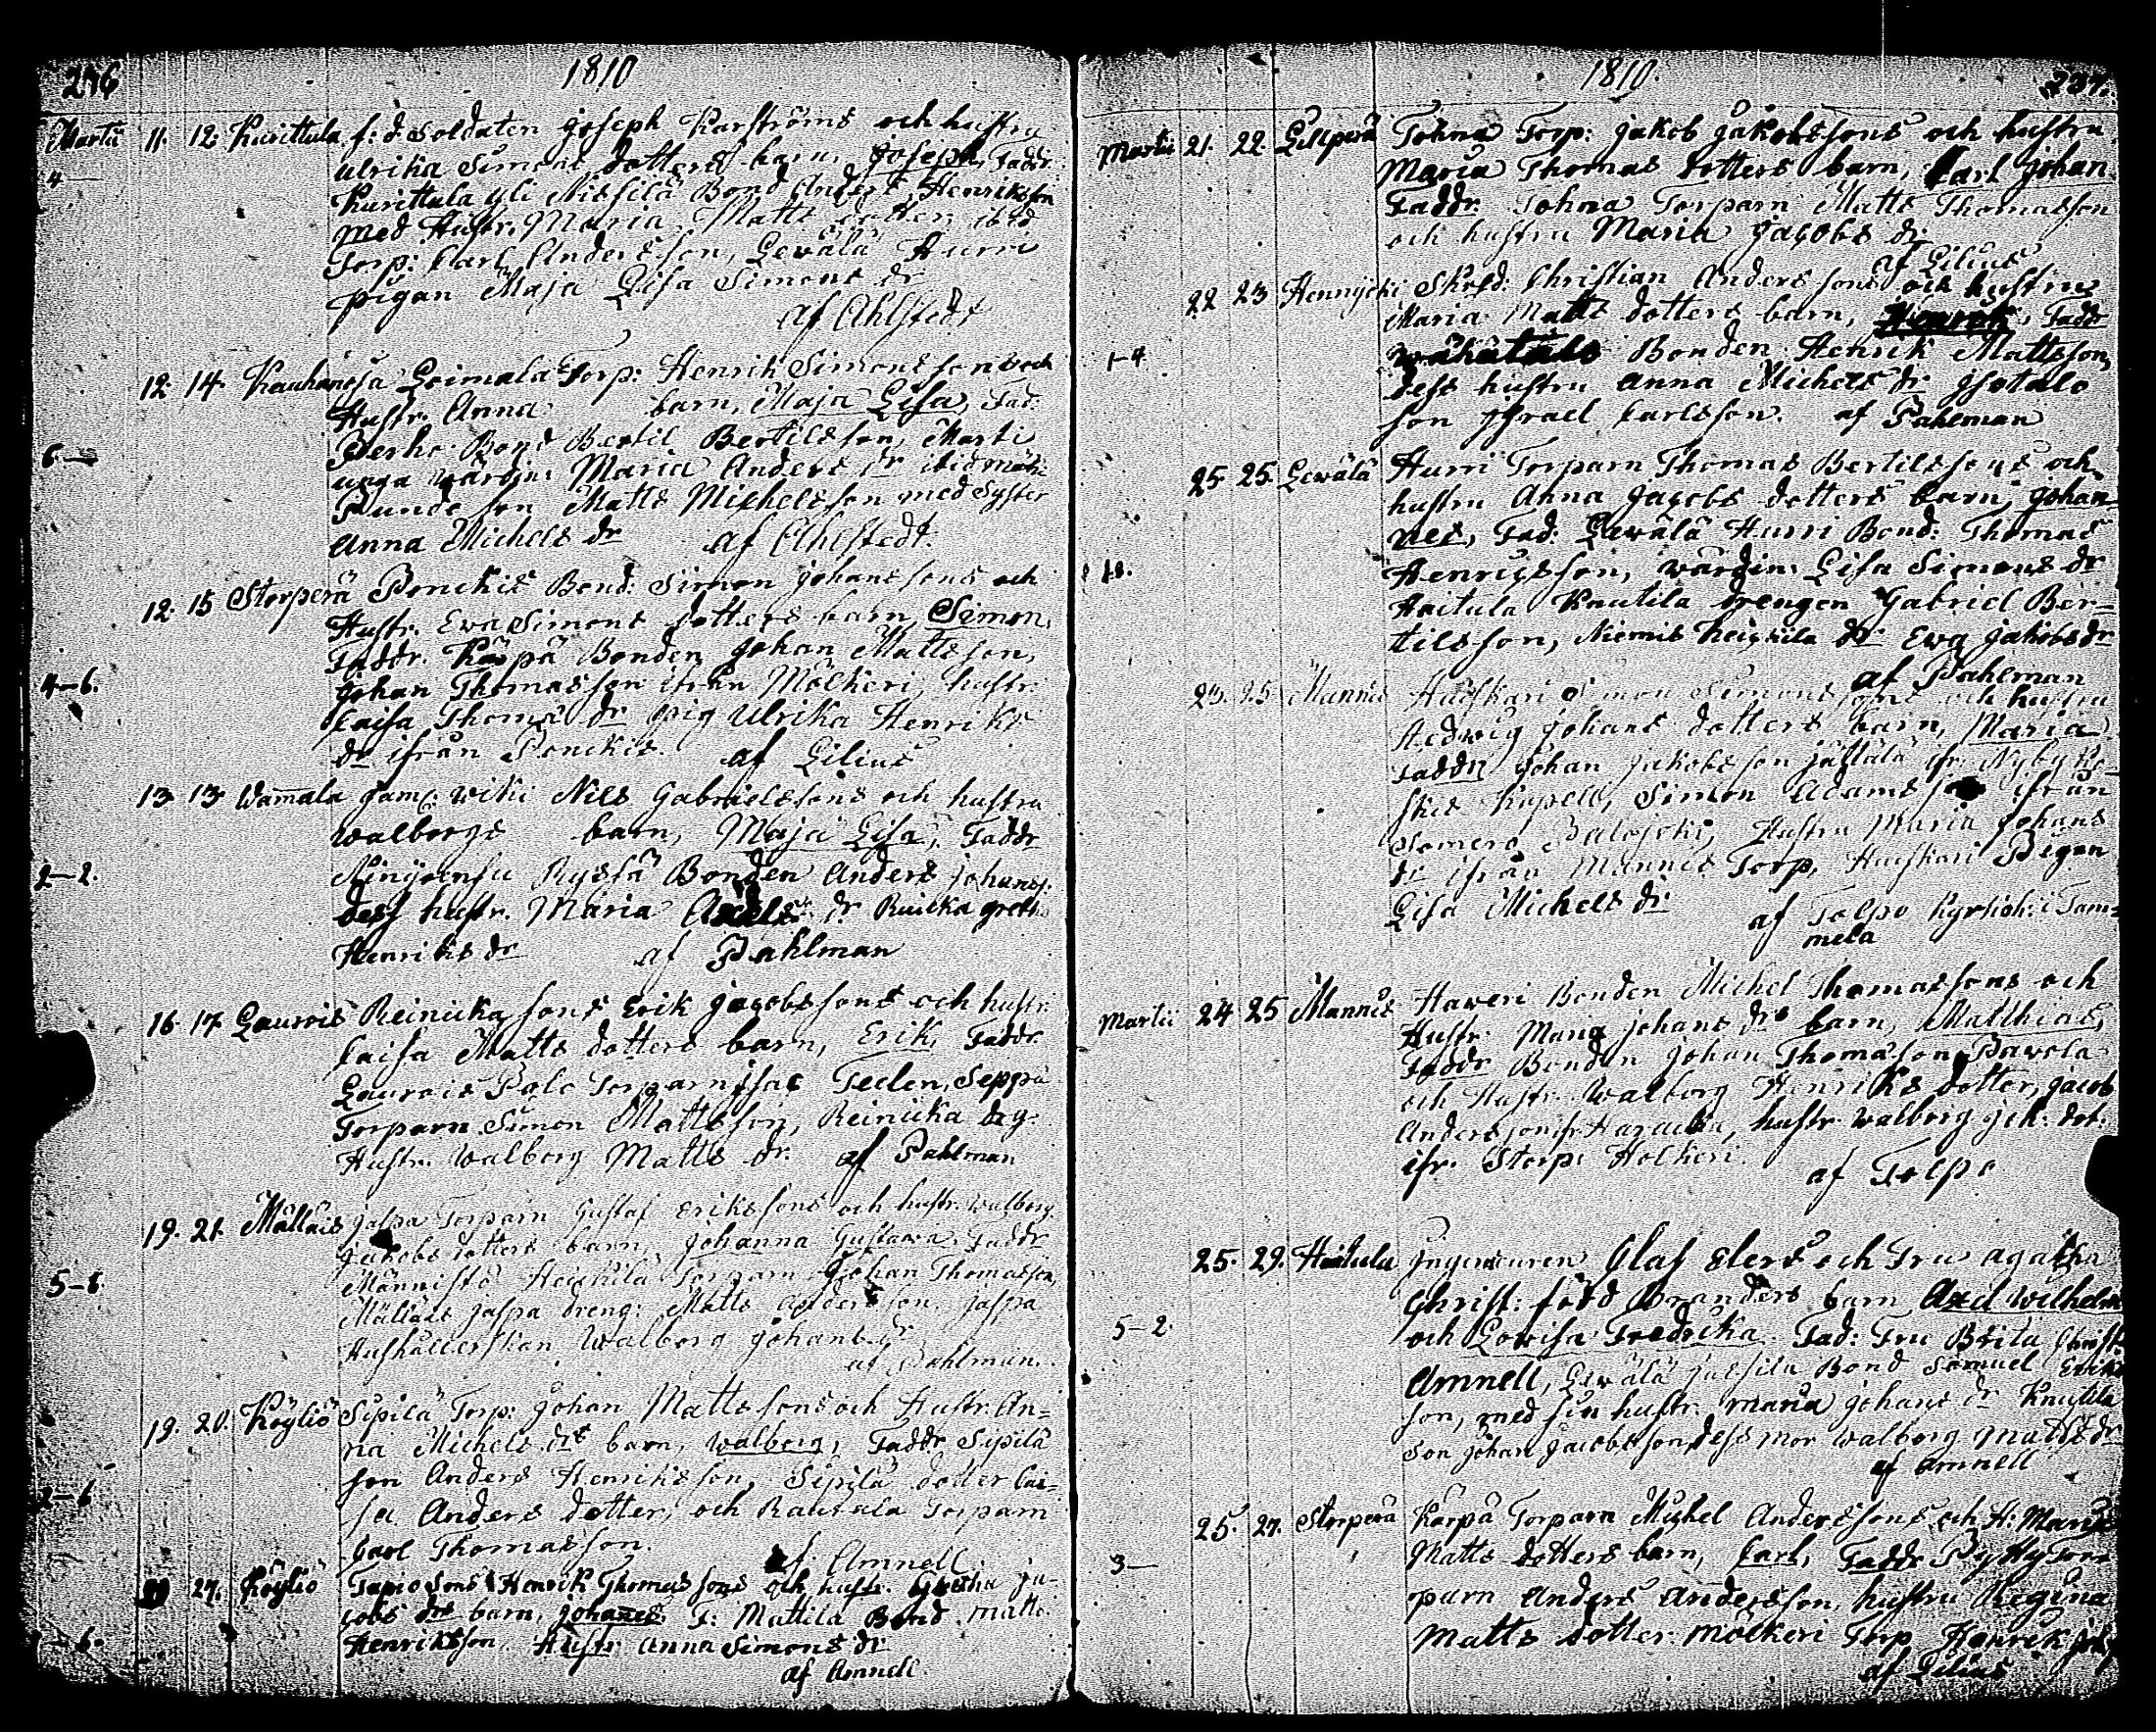 276
1810
Martii 11. 12. Kurittula f: d: Soldaten Joseph Karströms och hustru
4— Ulrika Simons dotters barn, Joseph, Faddr.
Kurittula Yli Nissilä Bond Anders Henriksson
med Hustr. Maria Matts dotter, ibid.
Torp: Carl Andersson, Lewälä Hurri
pigan Maja Lisa Simons dr
af Ahlstedt
12. 14. Kauhanoja Loimala Torp: Henrik Simonssons och
Hustr. Anna barn, Maja Lisa, Fad:
6— Perho Bond Bertil Bertilsson, Marti
unga wärdin: Maria Anders dr ibid
Sunde son Matts Michelsson med Syster
Anna Michels dr af Ahlstedt.
12. 15 Storperä Penckis Bond: Simon Johanssons och
Hustr. Ewa Simons dotters barn, Simon,
4—6. Faddr. Karpä Bonden Johan Mattsson,
Johan Thomasson ifrån Mölkeri, hustr.
Caisa Thoms dr pig Ulrika Henriks
dr ifrån Penckis. af Lilius
13. 13. Wamala gam: Wiki Nils Gabrielssons och hustru
Walborgs barn, Maja Lisa, Faddr
2—2. Ninijoensu Ryssä Bonden Anders Johanss:
dess hustr. Maria Axels dr Ruicka Greth
Henriks dr af Pahlman
16. 17. Laurois Reinicka sons Erik Jacobssons och hustr.
Caisa Matts dotters barn, Erik, Faddr.
Laurois Palo Torparn Isac Teelen, Seppä
Torparn Simon Mattsson, Reinicka
Hustr. Walborg Matts dr. af Pahlman
19. 21. Mällais Jaspa Torparn Gustaf Erikssons och hustr. Walborg
Jakobs dotters barn, Johanna Gustawa, Faddr
5—6. Mannistö Heickilä Torparn Johan Thomasson,
Mällais Jaspa dreng: Matts Andersson, Jaspa
Hushållerskan Walborg Johans dr
af Pahlman.
19. 20. Köyliö Sipilä Torp: Johan Mattssons och Hustr. An=
na Michels drs barn, Walborg, Faddr Sipilä
2—6 son Anders Henriksson, Sipilä dotter Cai=
sa Anders dotter, och Rautala Torparn
Carl Thomasson.
af Amnell
27. Köyliö Tapio Sons Henrik Thomassons och hustr. Gretha Ja=
cobs drs barn, Johanes. F: Mattila Bond Matts
Henriksson Hustr Anna Simons dr
af Amnell.
1810.
237.
Martii 21. 22. Lillperä Tohna Torp: Jakob Jakobssons och hustru
Maria Thomas dotters barn, Carl Johan
Faddr. Tohna Torparn Matts Thomasson
och hustru Maria Jacobs dr.
af Lilius
22 23 Hennijoki Skrdd: Christian Anderssons och hustru
Maria Matts dotters barn, Henrik, Faddr
1—4 Bonden Henrik Mattsson,
dess hustru Anna Michels dr Isotalo
son Israel Carlsson. af Pahlman
25. 25. Lewälä Hurri Torparn Thomas Bertilssons och
hustru Anna Jacobs dotters barn, Johan=
nes, Fad: Lewälä Hurri Bond: Thomas
Henricsson, wärdin: Lisa Simons dr
Haitula Knutila drengen Gabriel Ber=
tilsson, Niemis Heickila dr Ewa Jakobs dr
af Pahlman
23. 25 Mannis Huiskari Simon Simonssons och hustru
Hedwig Johans dotters barn, Maria
Faddr Johan Jakobsson Jällälä ifr. Nyby
Kapell, Simon Adams son ifrån
Somero Palojoki, Hustru Maria Johans
dr ifrån Mannis Torp, Huiskari Pigan
Lisa Michels dr
af Tolpo Kyrkioh: i Tam=
mela
Martii 24 25 Mannis Haweri Bonden Michel Thomassons och
Hustr. Maria Johans drs barn, Matthias,
Faddr Bonden Johan Thomasson Pavola
och Hustr. Walborg Henriks dotter, Jacob
Andersson ifr Haraicka, hustr. Walborg Jak: dot:
ifr. Storp: Holkeri.
af Tolpo
25. 29. Haitula Ingenieuren Olaf Elers och Fru Agatha
Christ: född Branders barn Axel Wilhelm
5—2. och Lowisa Fredrika. Fad: Fru Brita Christ:
Amnell, Lewälä Jussila Bond Samuel Eriks
son, med sin hustr. Maria Johans dr Knutila
Son Johan Jacobsson, dess mor Walborg Matts dr
af Amnell
25. 27. Storperä Karpä Torparn Michel Anderssons och H: Maria
Matts dotters barn, Carl, Faddr Pyhy Tor=
3— parn Anders Andersson, hustru Regina
Matts dotter. Mölkeri Torp Henrik
af Lilius